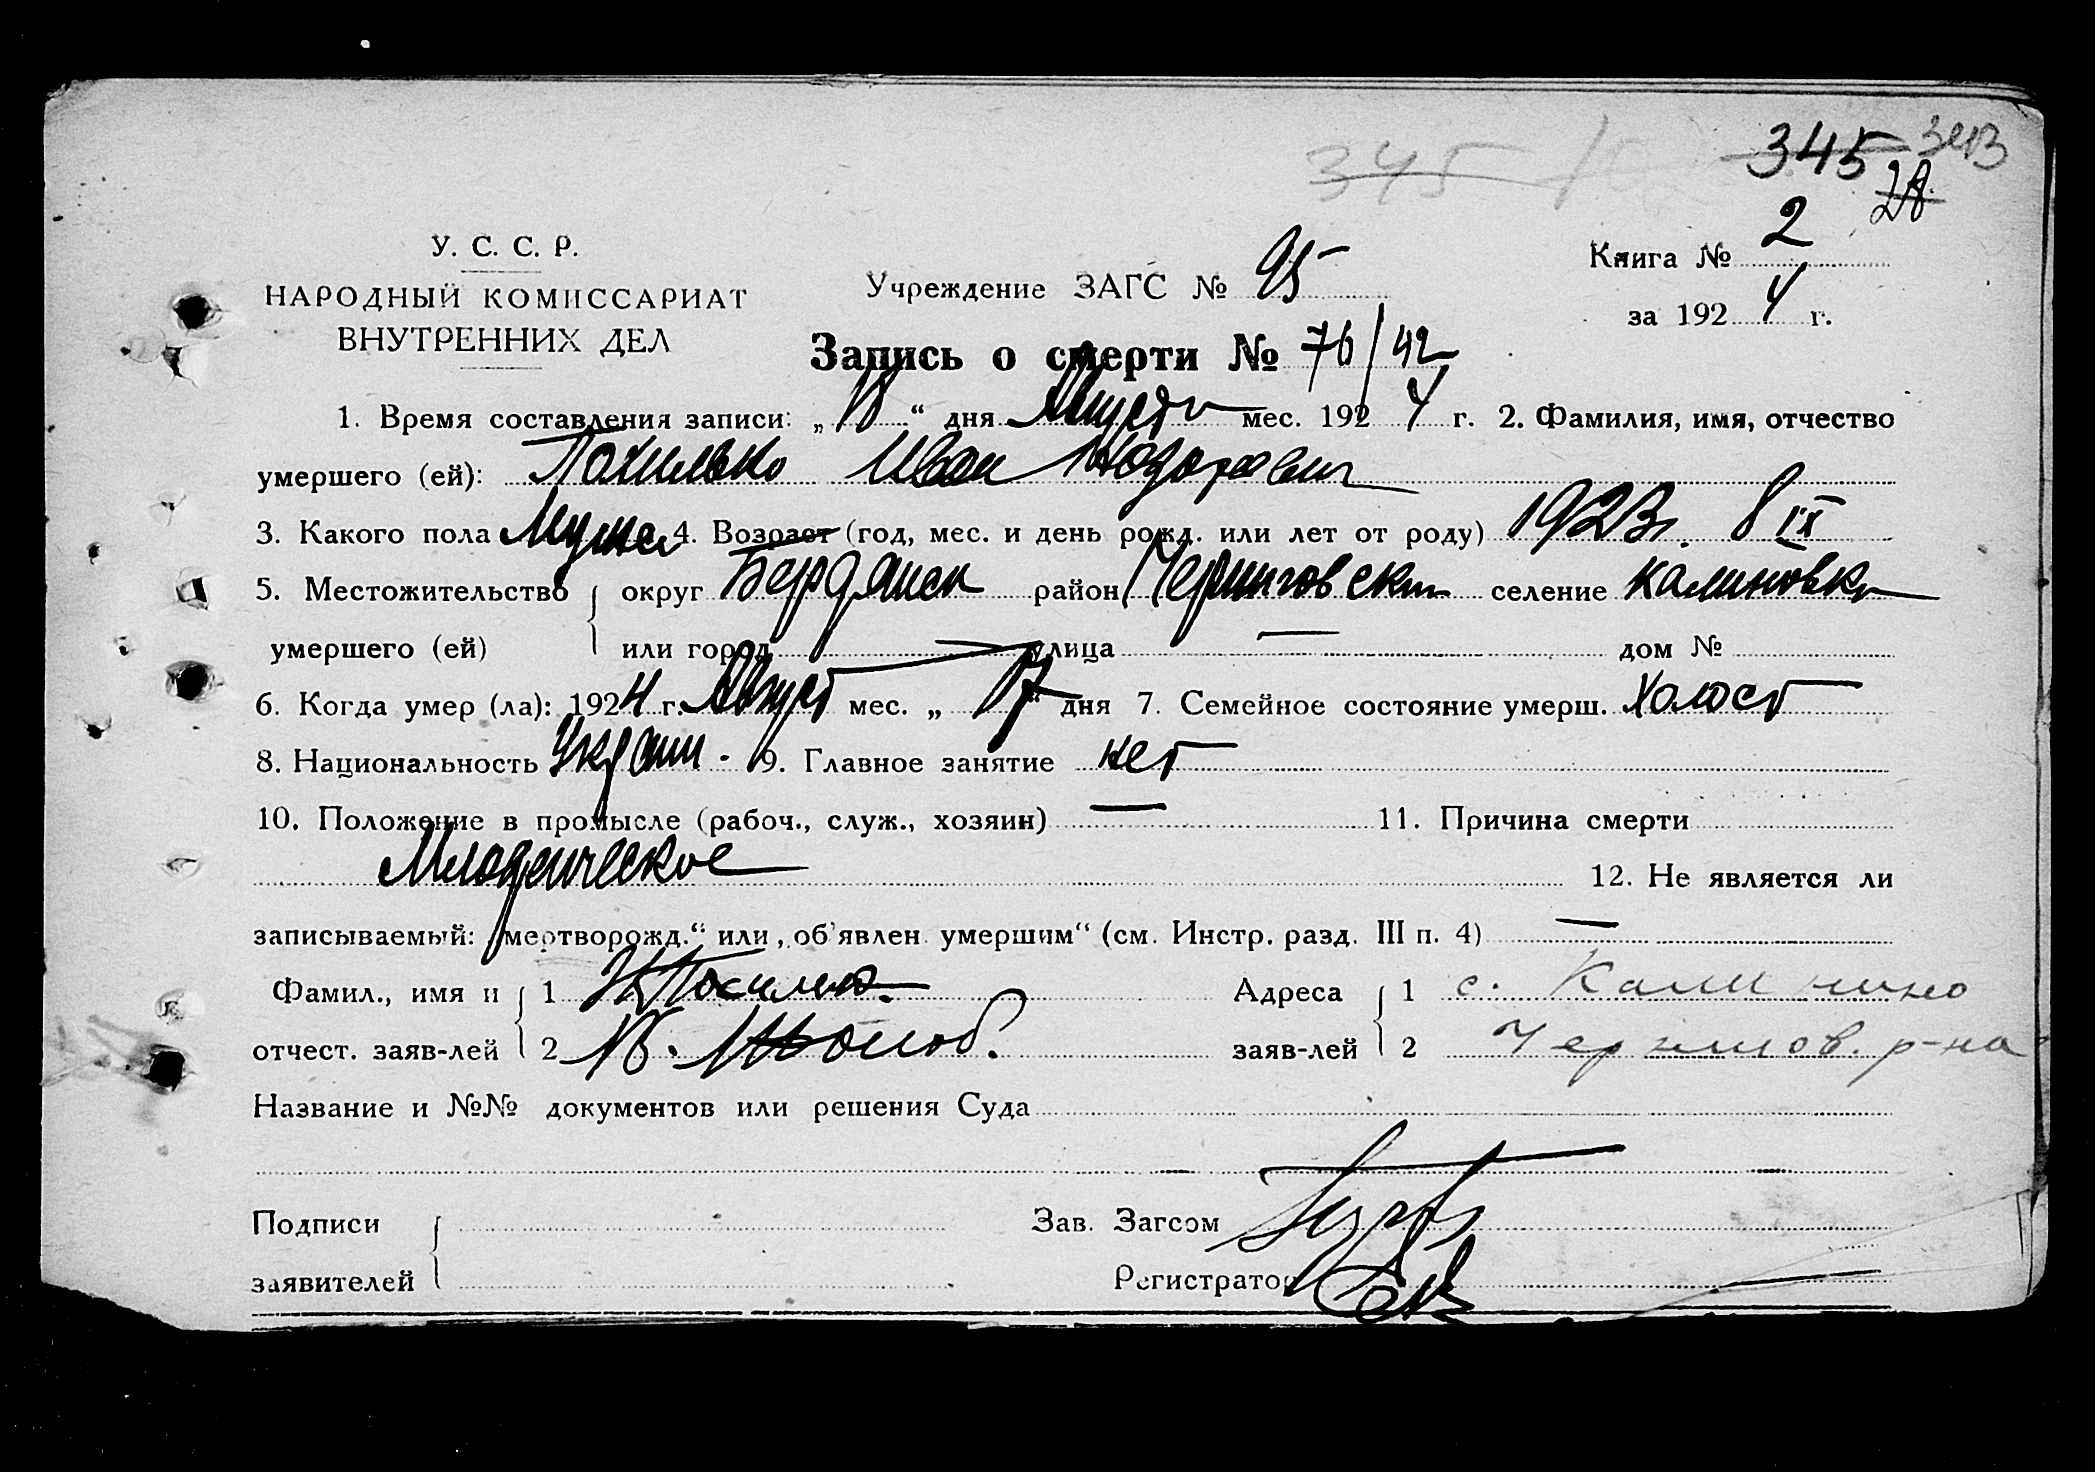 345 345 343
28
У. С. С. Р.
НАРОДНЫЙ КОМИССАРИАТ
ВНУТРЕННИХ ДЕЛ
Учреждение ЗАГС № 95
Книга № 2
за 1924 г.
Запись о смерти № 76/42
1. Время составления записи: „18“ дня Августа мес. 1924 г. 2. Фамилия, имя, отчество
умершего (ей): Похилько Иван
3. Какого пола Мужск 4. Возраст (год, мес. и день рожд. или лет от роду) 1923 г. 8 IX
5. Местожительство округ Бердянск район Черниговский селение Калиновка
умершего (ей) или город улица — дом №
6. Когда умер (ла): 1924 г. Август мес. „17 дня 7. Семейное состояние умерш. Холост
8. Национальность Украин. 9. Главное занятие нет
10. Положение в промысле (рабоч., служ., хозяин) — 11. Причина смерти
Младенческое 12. Не является ли
записываемый: „мертворожд.“ или „об'явлен умершим“ (см. Инстр. разд. III п. 4) —
Фамил., имя и 1 Адреса 1 с.
отчест. заяв-лей 2 заяв-лей 2 р-на
Название и №№ документов или решения Суда
Подписи Зав. Загсом
заявителей Регистратор